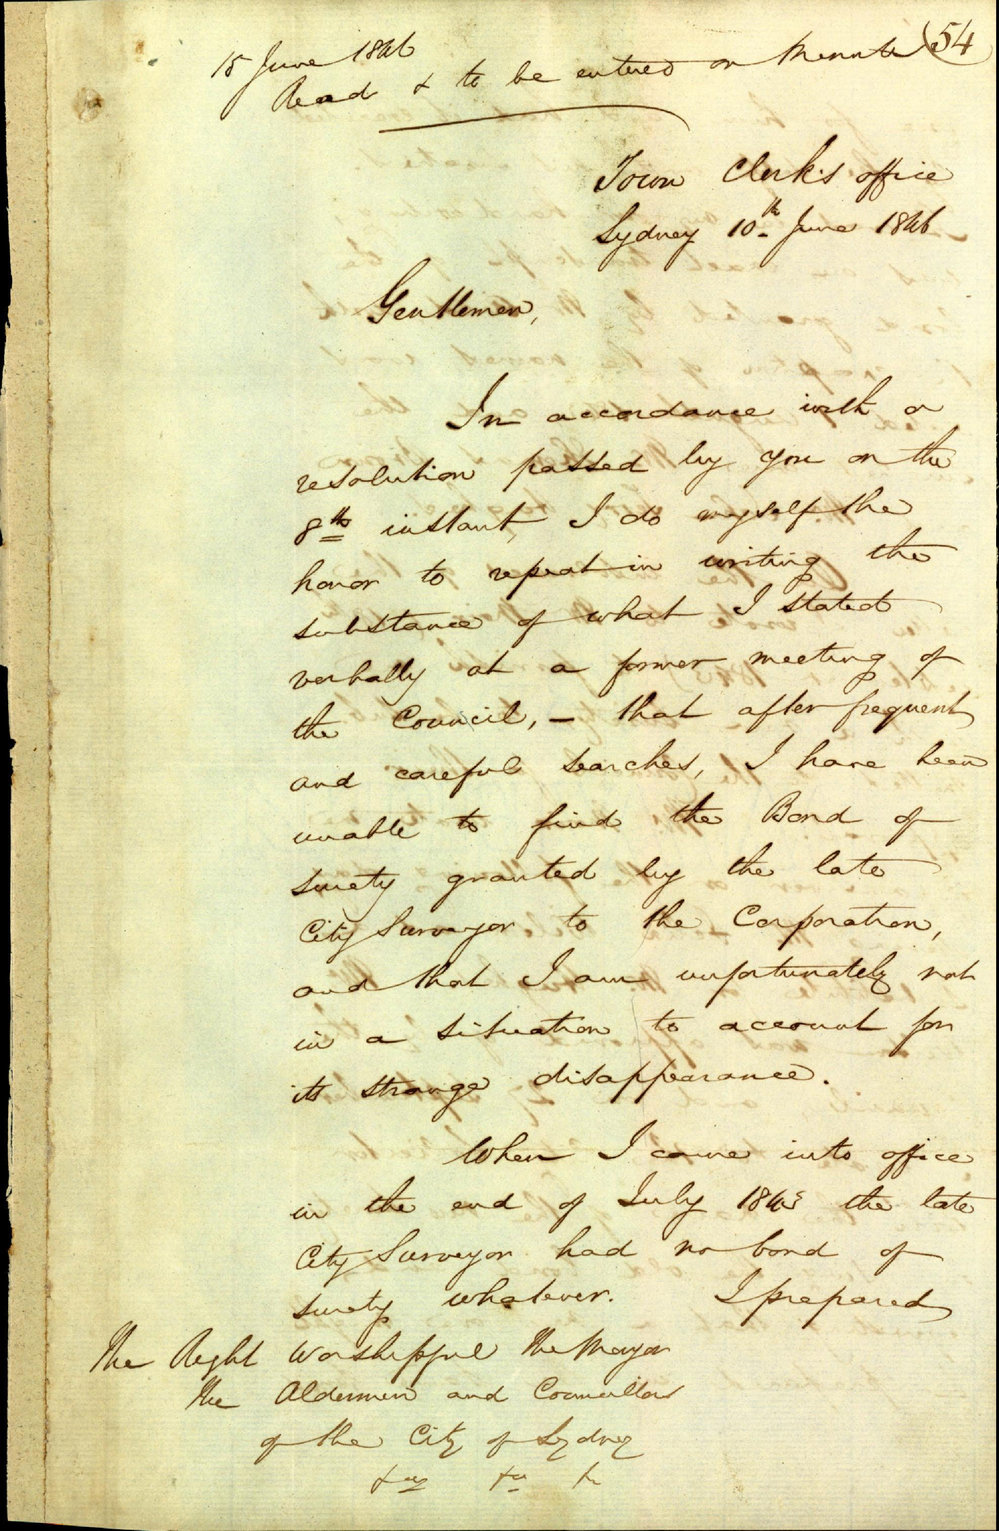 54
15 June 1846
Read & to be entered on Minute
Town Clerk's office
Sydney 10th June 1846
Gentlemen,
In accordance with a
resolution passed by you on the
8th instant, I do myself the
honor to repeat in writing the
substance of what I stated
verbally at a former meeting of
the Council, – that after frequent
and careful searches, I have been
unable to find the Bond of
surety granted by the late
City Surveyor to the Corporation,
and that I am unfortunately not
in a situation to account for
its strange disappearance.
When I came into office
in the end of July 1843 the late
City Surveyor had no bond of
surety whatever. I prepared
The Right Worshipful The Mayor
The Aldermen and Councillors
of the City of Sydney
&c &c &c